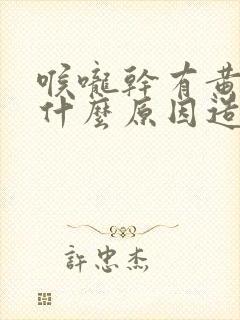 喉嚨幹有黃
什麼原因造
許忠杰